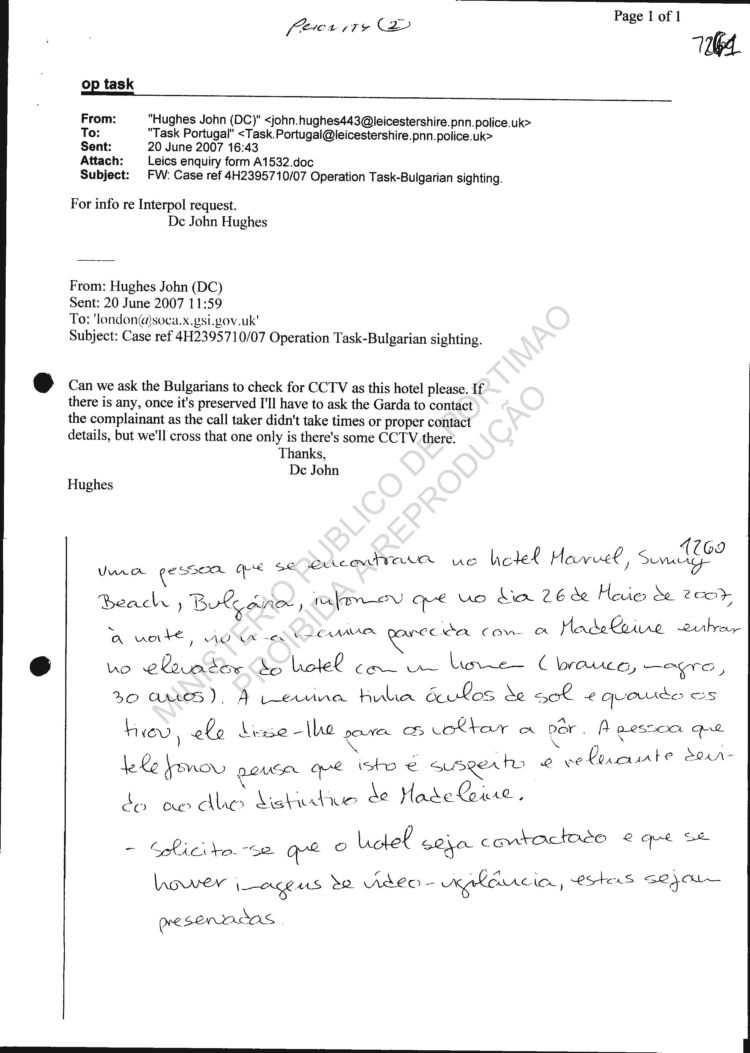 PRIORITY (2)
Page 1 of 1
op task
From: "Hughes John (DC)" <john.hughes443@leicestershire.pnn.police.uk>
To: "Task Portugal" <Task.Portugal@leicestershire.pnn.police.uk>
Sent: 20 June 2007 16:43
Attach: Leics enquiry form A1532.doc
Subject: FW: Case ref 4H2395710/07 Operation Task-Bulgarian sighting.
For info re Interpol request.
Dc John Hughes
From: Hughes John (DC)
Sent: 20 June 2007 11:59
To: 'london@soca.x.gsi.gov.uk'
Subject: Case ref 4H2395710/07 Operation Task-Bulgarian sighting.
Can we ask the Bulgarians to check for CCTV as this hotel please. If
there is any, once it's preserved I'll have to ask the Garda to contact
the complainant as the call taker didn't take times or proper contact
details, but we'll cross that one only is there's some CCTV there.
Thanks,
Dc John
Hughes
1260
Uma pessoa que se encontrava no hotel Marvel, Sunny
Beach, Bulgária, informou que no dia 26 de Maio de 2007,
à noite, menina parecida com a Madeleine entrar
no elevador do hotel com um homem (branco, magro,
30 anos). A menina tinha óculos de sol e quando os
tirou, ele disse-lhe para os voltar a pôr. A pessoa que
telefonou pensa que isto é suspeito e relevante devi-
do ao olho distintivo de Madeleine.
- Solicita-se que o hotel seja contactado e que se
houver imagens de vídeo-vigilância, estas sejam
preservadas
MINISTÉRIO PUBLICO DE PORTIMAO
PROIBIDA A REPRODUÇÃO